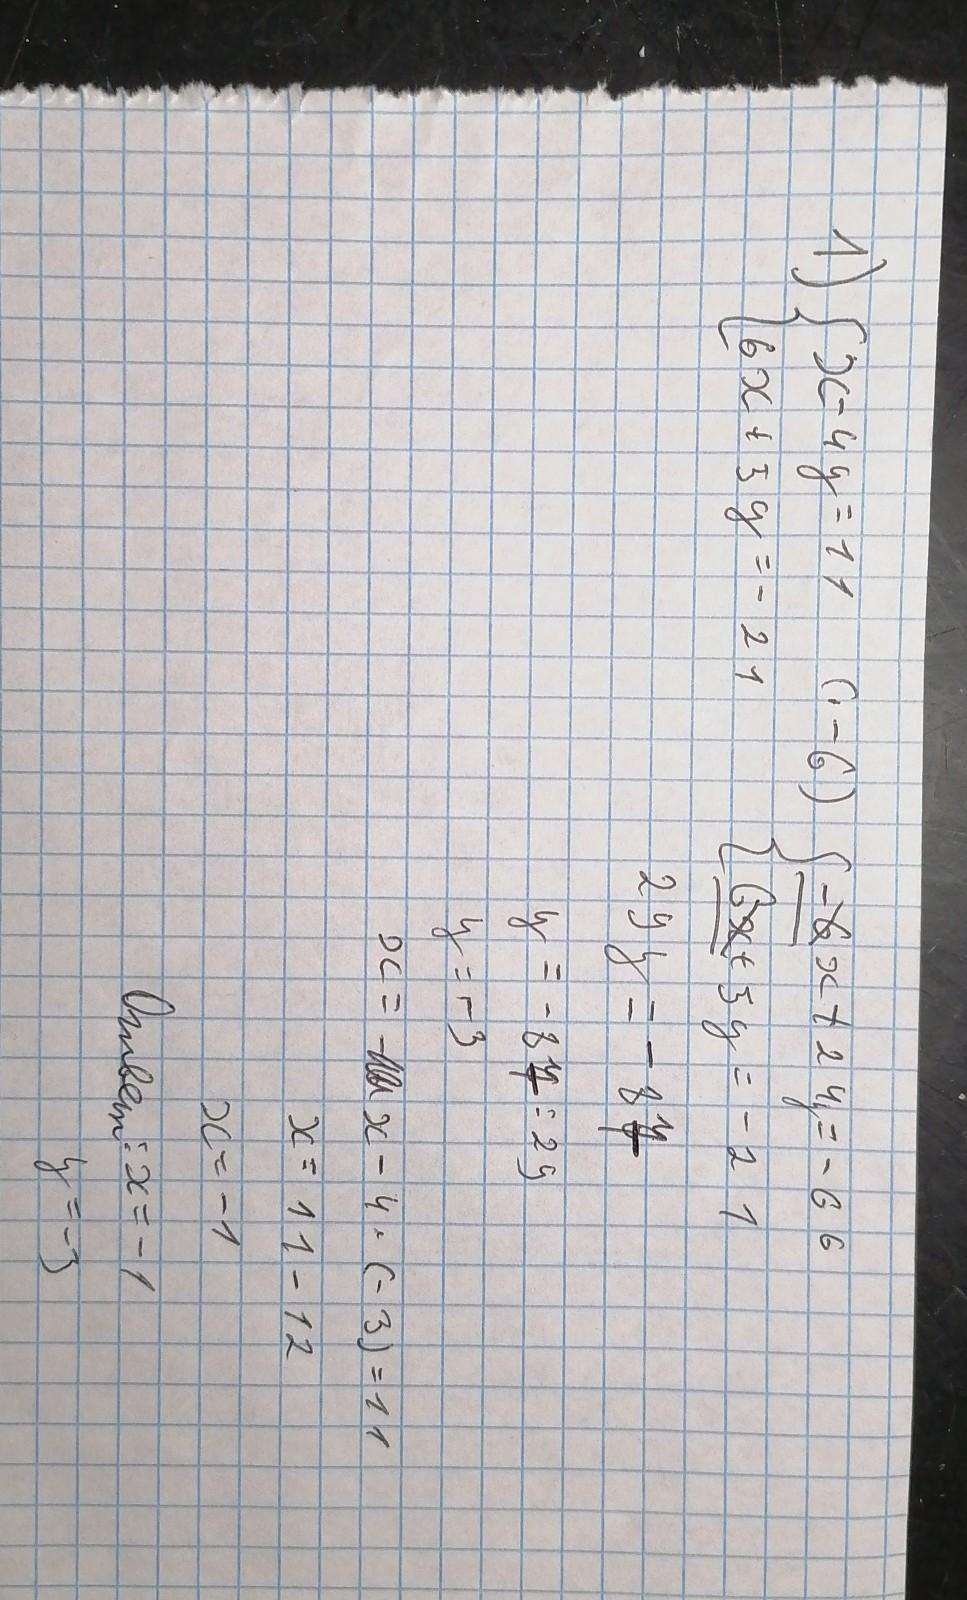 1) { x - 4y = 11 (· - 6) { -6x + 24y = -66
{ 6x + 5y = -21 { 6x + 5y = -21
29y = -87
y = -87 : 29
y = -3
x = - x - 4 · (-3) = 11
x = 11 - 12
x = -1
Ответ: x = -1
y = -3